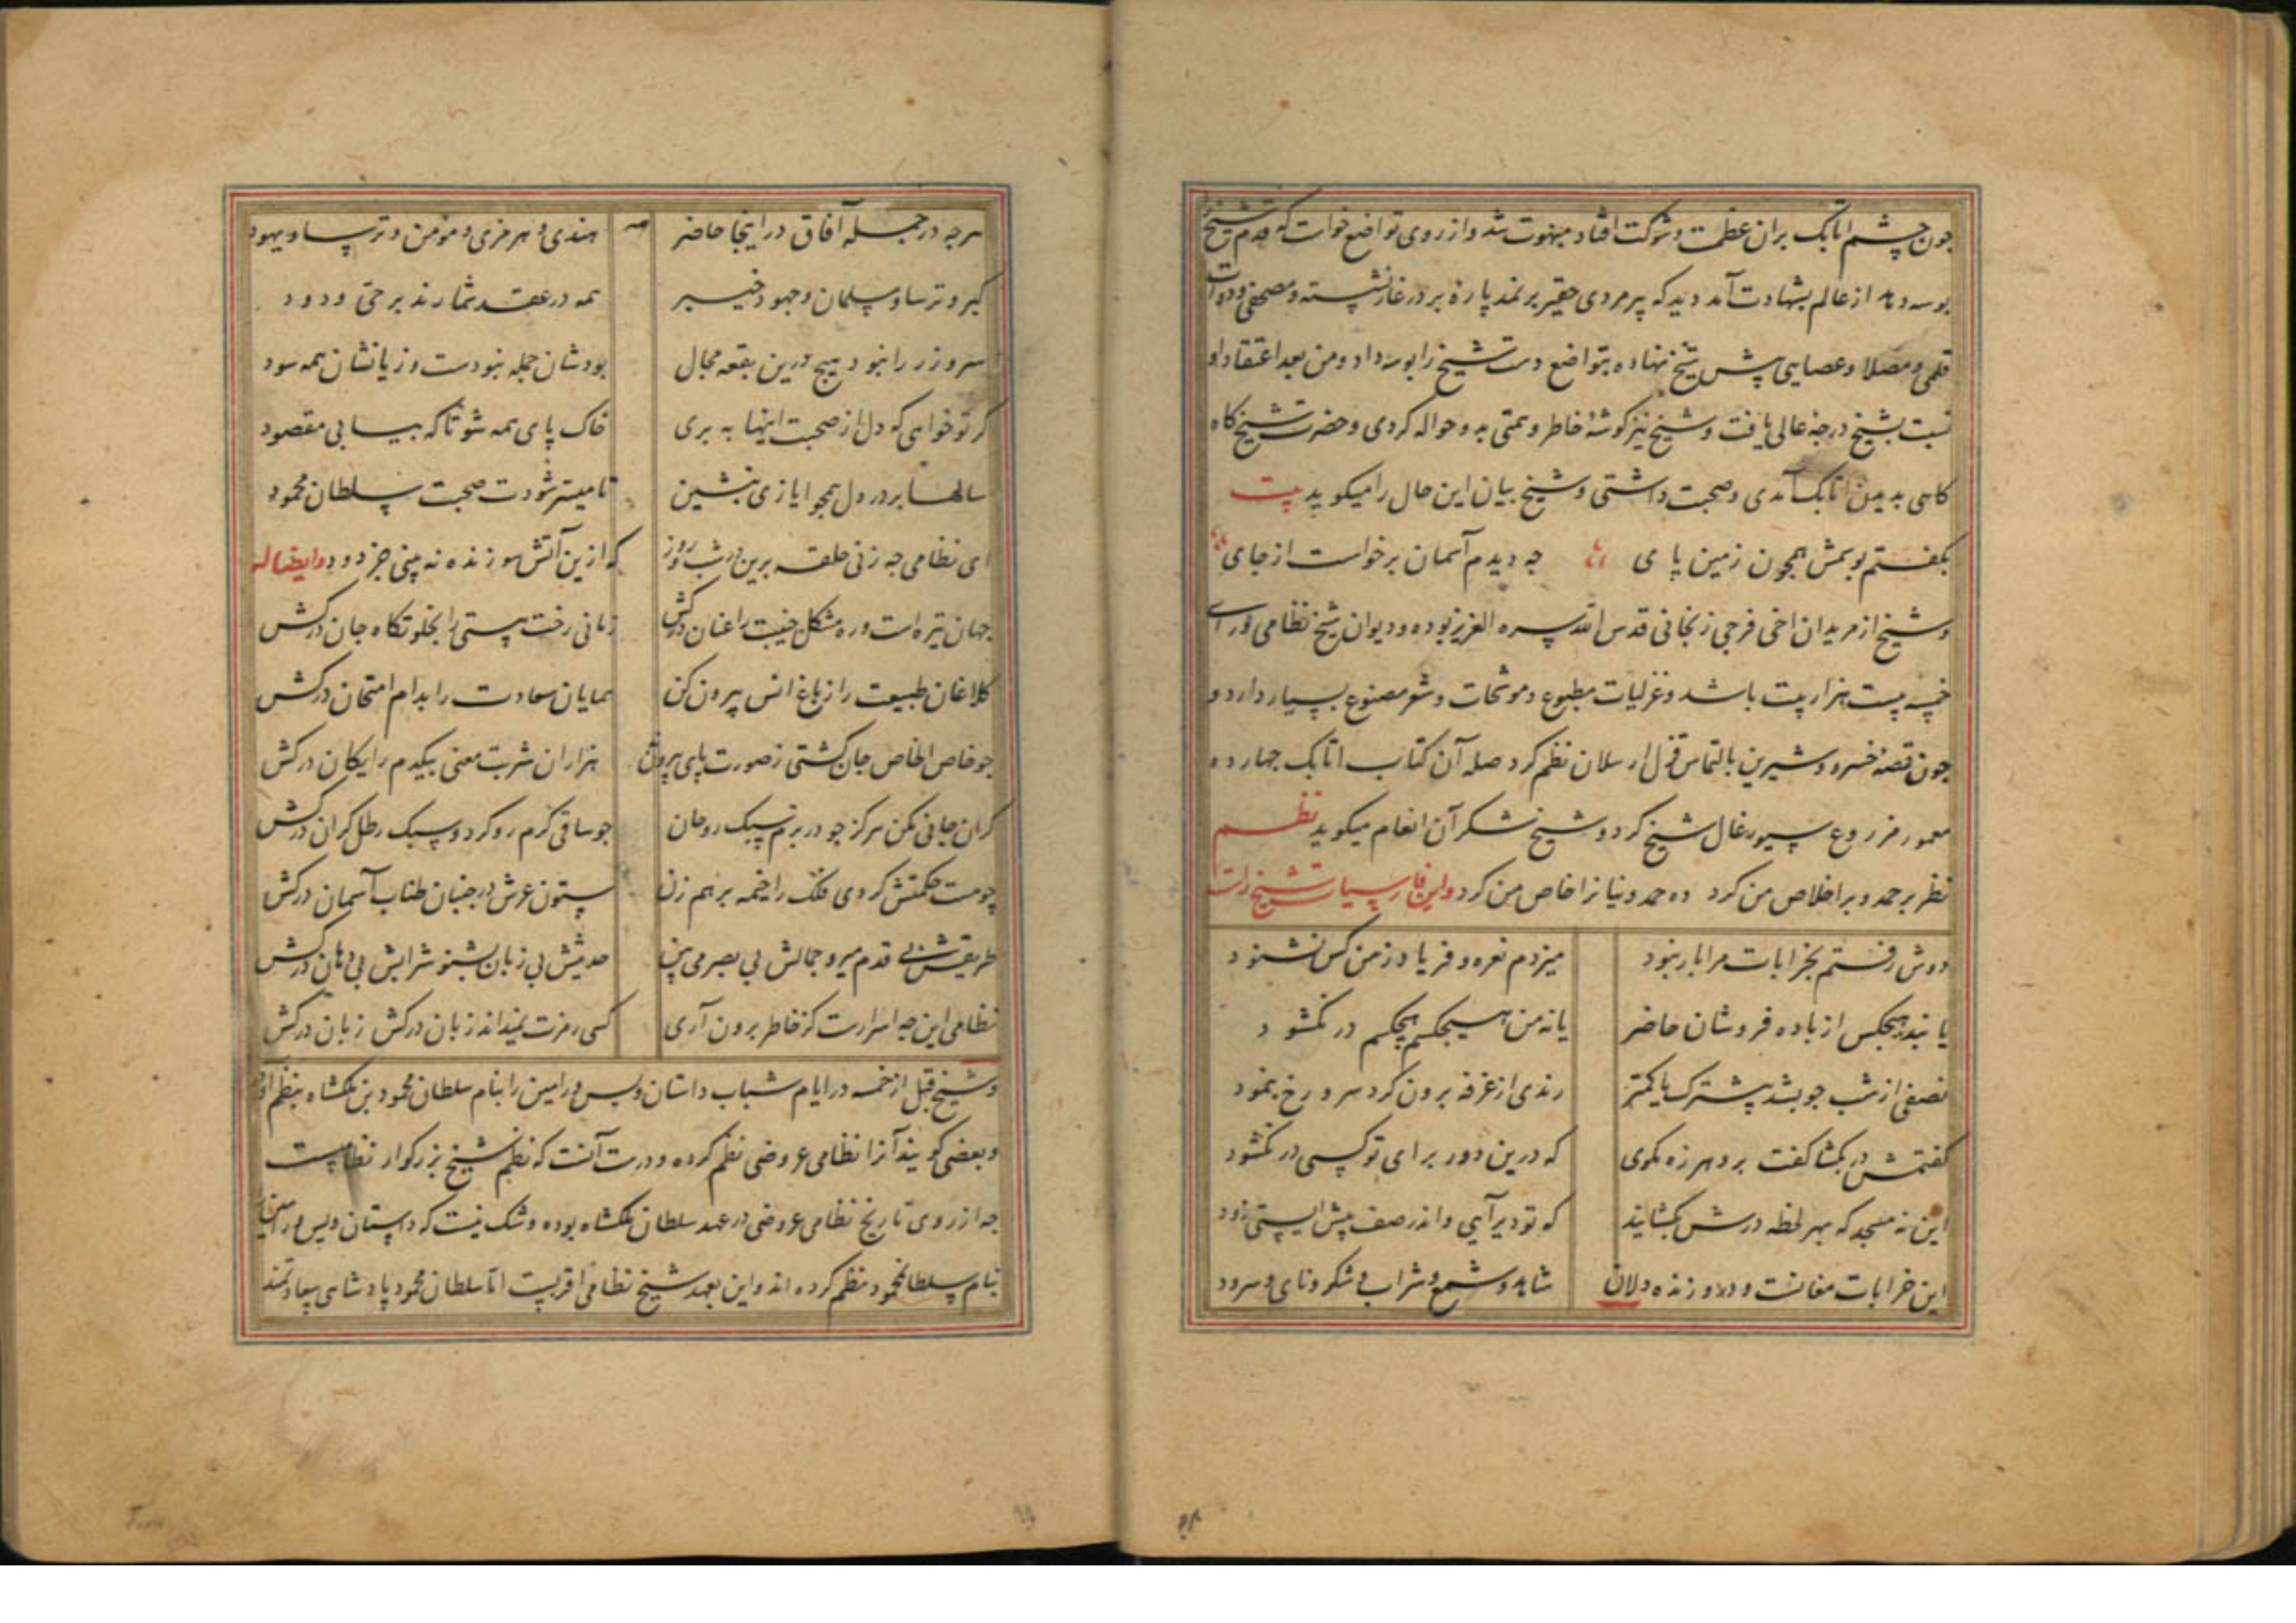 چون چشم اتابک بران عظمت و شوکت افتاد مبهوت شد و از روی تواضع خواست که قدم شیخ
بوسه دهد از عالم بشهادت آمد دید که پیر مردی حقیر بر نمد پارهٔ بر در غار نشسته و مصحفی و دوات
قلمی و مصلا و عصایی پیش شیخ نهاده بتواضع دست شیخ را بوسه داد و من بعد اعتقاد او
نسبت بشیخ درجهٔ عالی یافت و شیخ نیز گوشهٔ خاطر و همتی بدو حواله کردی و حضرت شیخ گاه
گاهی بدیدن اتابک آمدی و صحبت داشتی و شیخ بیان این حال را میگوید بیت
بگفتم بوسمش همچون زمین پای چه دیدم آسمان برخواست از جای
و شیخ از مریدان اخی فرجی زنجانی قدس الله سره العزیز بوده و دیوان شیخ نظامی ورای
خمسه بیست هزار بیت باشد و غزلیات مطبوع و موشحات و شعر مصنوع بسیار دارد و
چون قصهٔ خسرو و شیرین بالتماس قزل ارسلان نظم کرد صله آن کتاب اتابک چهارده
معمور مزروع سیورغال شیخ کرد و شیخ شکر آن انعام میگوید نظم
نظر بر حمد و بر اخلاص من کرد ده حمدونیا نرا خاص من کرد
دوش رفتم بخرابات مرا بار نبود میزدم نعره و فریاد ز من کس نشنود
یا نبد هیچکس از باده فروشان حاضر یا نه من هیچکسم هیچکسم در نگشود
نصفی از شب چو بشد بیشترک یا کمتر رندی از غرفه برون کرد سر و رخ بنمود
گفتمش در بگشا گفت برو هرزه مگوی که درین دور برای تو کسی در نگشود
این نه مسجد که بهر لحظه درش بگشایند که تو دیر آیی و اندر صف پیش ایستی زود
این خرابات مغانست و درو زنده دلان شاهد و شمع و شراب و شکر و نای و سرود
هرچه در جمله آفاق در اینجا حاضر هندی و هرمزی و مومن و ترسا و یهود
گبر و ترسا و مسلمان و جهود خیبر همه در عقد شمارند بر حی ودود
سر و زر را نبود هیچ درین بقعه مجال بودشان جمله نبودست و زیانشان همه سود
گر تو خواهی که دل از صحبت اینها به بری خاک پای همه شو تا که بیابی مقصود
سالها بر در دل همچو ایازی بنشین تا میسر شودت صحبت سلطان محمود
ای نظامی چه زنی حلقه برین در شب و روز که ازین آتش سوزنده نه بینی جز دود وایضا له
جهان تیره است و ره مشکل جنیبت را عنان درکش زمانی رخت هستی را بخلوتگاه جان درکش
کلاغان طبیعت را ز باغ انس بیرون کن همایان سعادت را بدام امتحان درکش
چو خاص الخاص جان گشتی ز صورت پای بیرون نه هزاران شربت معنی بیکدم رایگان درکش
گران جانی مکن هرگز چو در بزم سبک روحان چو ساقی گرم رو گردد سبک رطل گران درکش
چو مست حکمتش گردی فلک را خیمه بر هم زن ستون عرش در جنبان طناب آسمان درکش
طریقش بی قدم میرو جمالش بی بصر می بین حدیثش بی زبان بشنو شرابش بی دهان درکش
نظامی این چه اسرارست کز خاطر برون آری کسی رمزت نمیداند زبان درکش زبان درکش
و شیخ قبل از خمسه در ایام شباب داستان ویس و رامین را بنام سلطان محمود بن ملکشاه بنظم
و بعضی گویند آنرا نظامی عروضی نظم کرده و درست آنست که نظم شیخ بزرگوار نظامیست
چه از روی تاریخ نظامی عروضی در عهد سلطان ملکشاه بوده و شک نیست که داستان ویس و رامین را
بنام سلطان محمود نظم کرده اند و این بعهد شیخ نظامی اقربست اما سلطان محمود پادشاهی سعادتمند